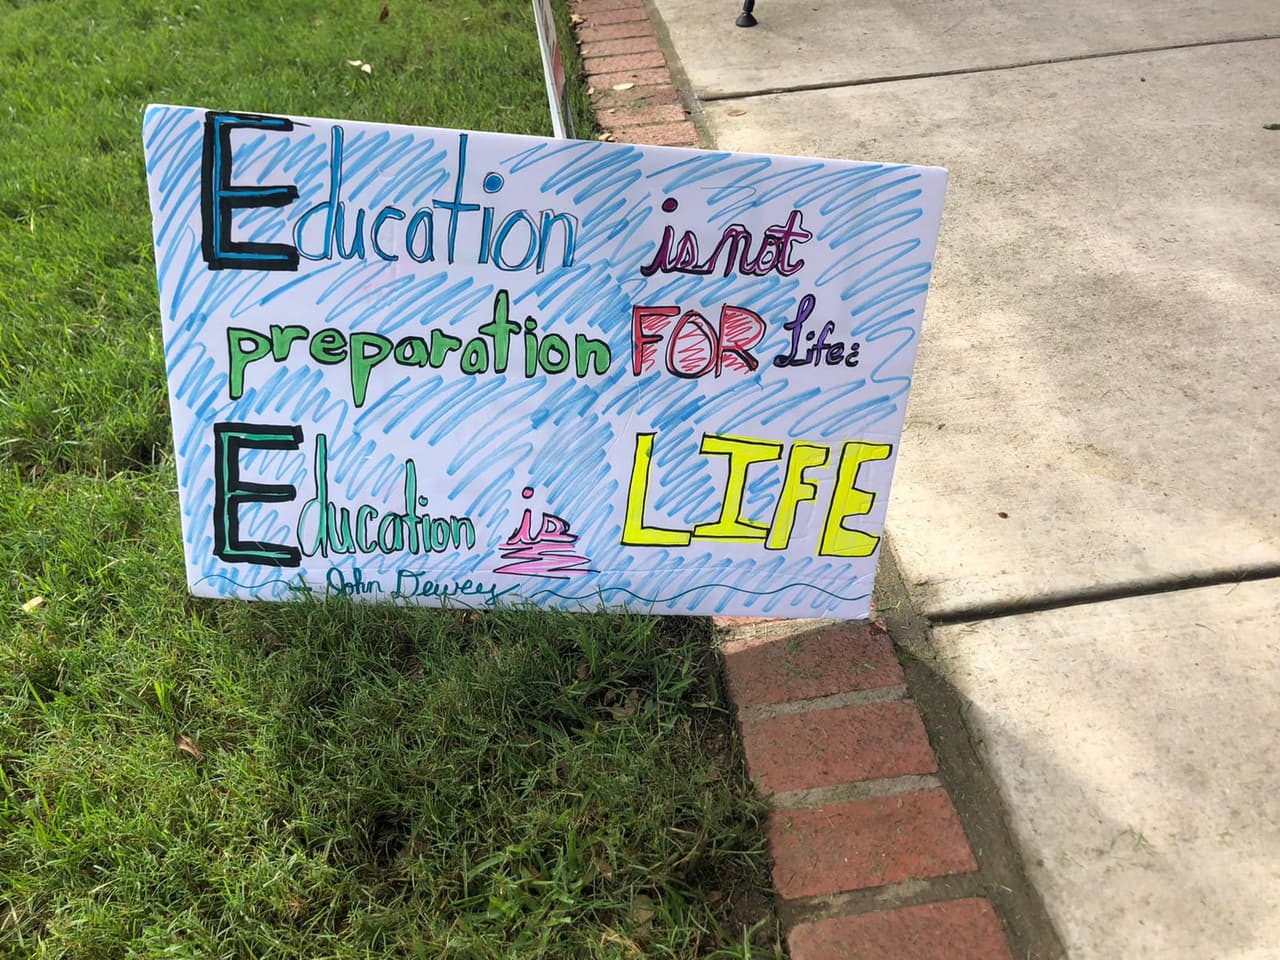 Education is not
preparation FOR Life:
Education is LIFE
- John Dewey -